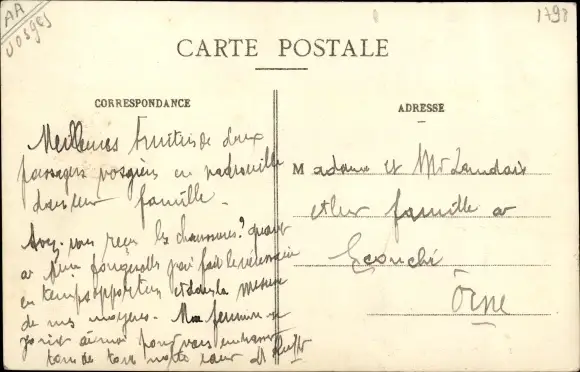 AA
Vosges
1798
CARTE POSTALE
CORRESPONDANCE
ADRESSE
Meilleures Amitiés de deux
passagers vosgiens en vadrouille
dans leur famille -
Avez-vous reçu les chaussures? quant
à j'ai fait le nécessaire
en temps opportun et dans la mesure
de mes moyens. Ma femme se
joint à moi pour vous embrasser
tous de tout notre cœur
Madame et Mr Landais
et leur famille à
Ecouché
Orne